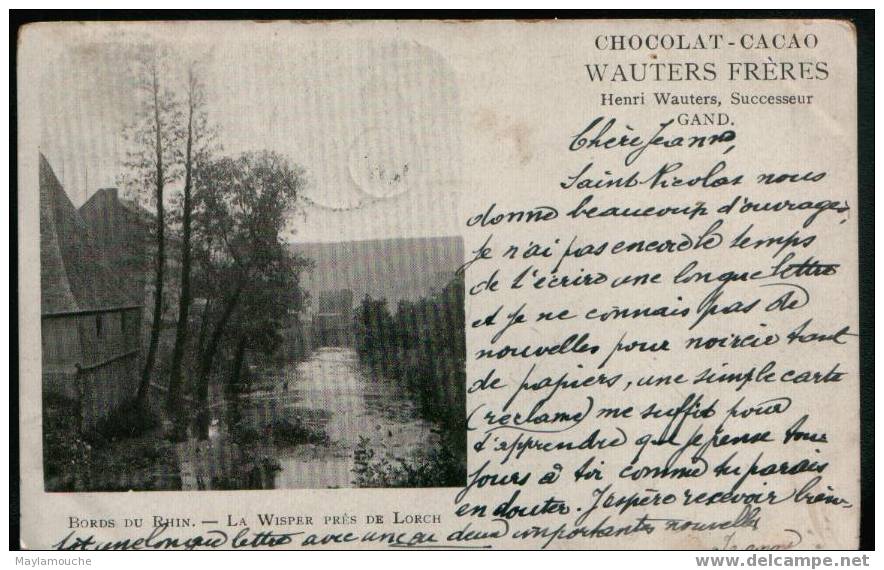 CHOCOLAT-CACAO
WAUTERS FRÈRES
Henri Wauters, Successeur
GAND.
Chère Jeanne,
Saint-Nicolas nous
donne beaucoup d'ouvrage,
je n'ai pas encore le temps
de t'écrire une longue lettre
et je ne connais pas de
nouvelles pour noircir tant
de papiers, une simple carte
(reclame) me suffit pour
t'apprendre que je pense tou
jours à toi comme tu parais
en douter. J'espère recevoir bien-
tôt une longue lettre avec une ou deux importantes nouvelles
Jeanne
BORDS DU RHIN. — LA WISPER PRÈS DE LORCH
Maylamouche
www.delcampe.net